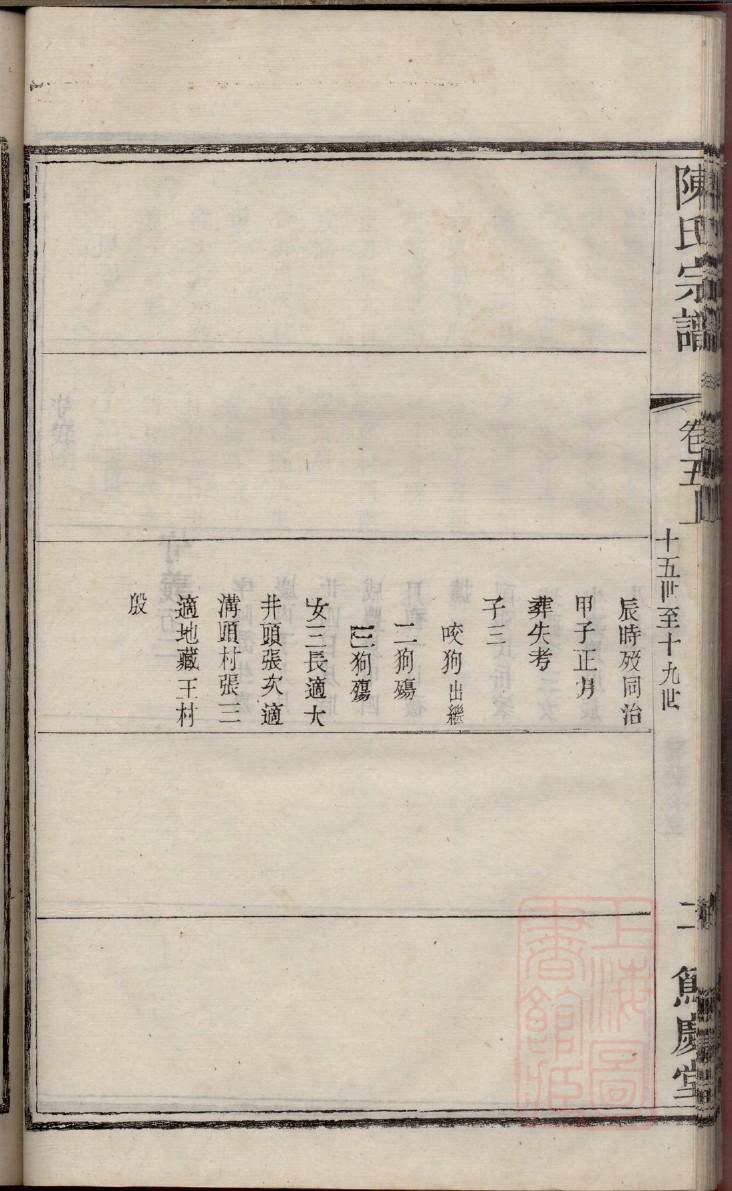 陳氏宗譜
卷五上
十五世至十九世
二
篤慶堂
辰時歿同治
甲子正月
葬失考
子三
咬狗出繼
二狗殤
三狗殤
女三長適大
井頭張次適
溝頭村張三
適地藏王村
殷
上海圖
書館藏